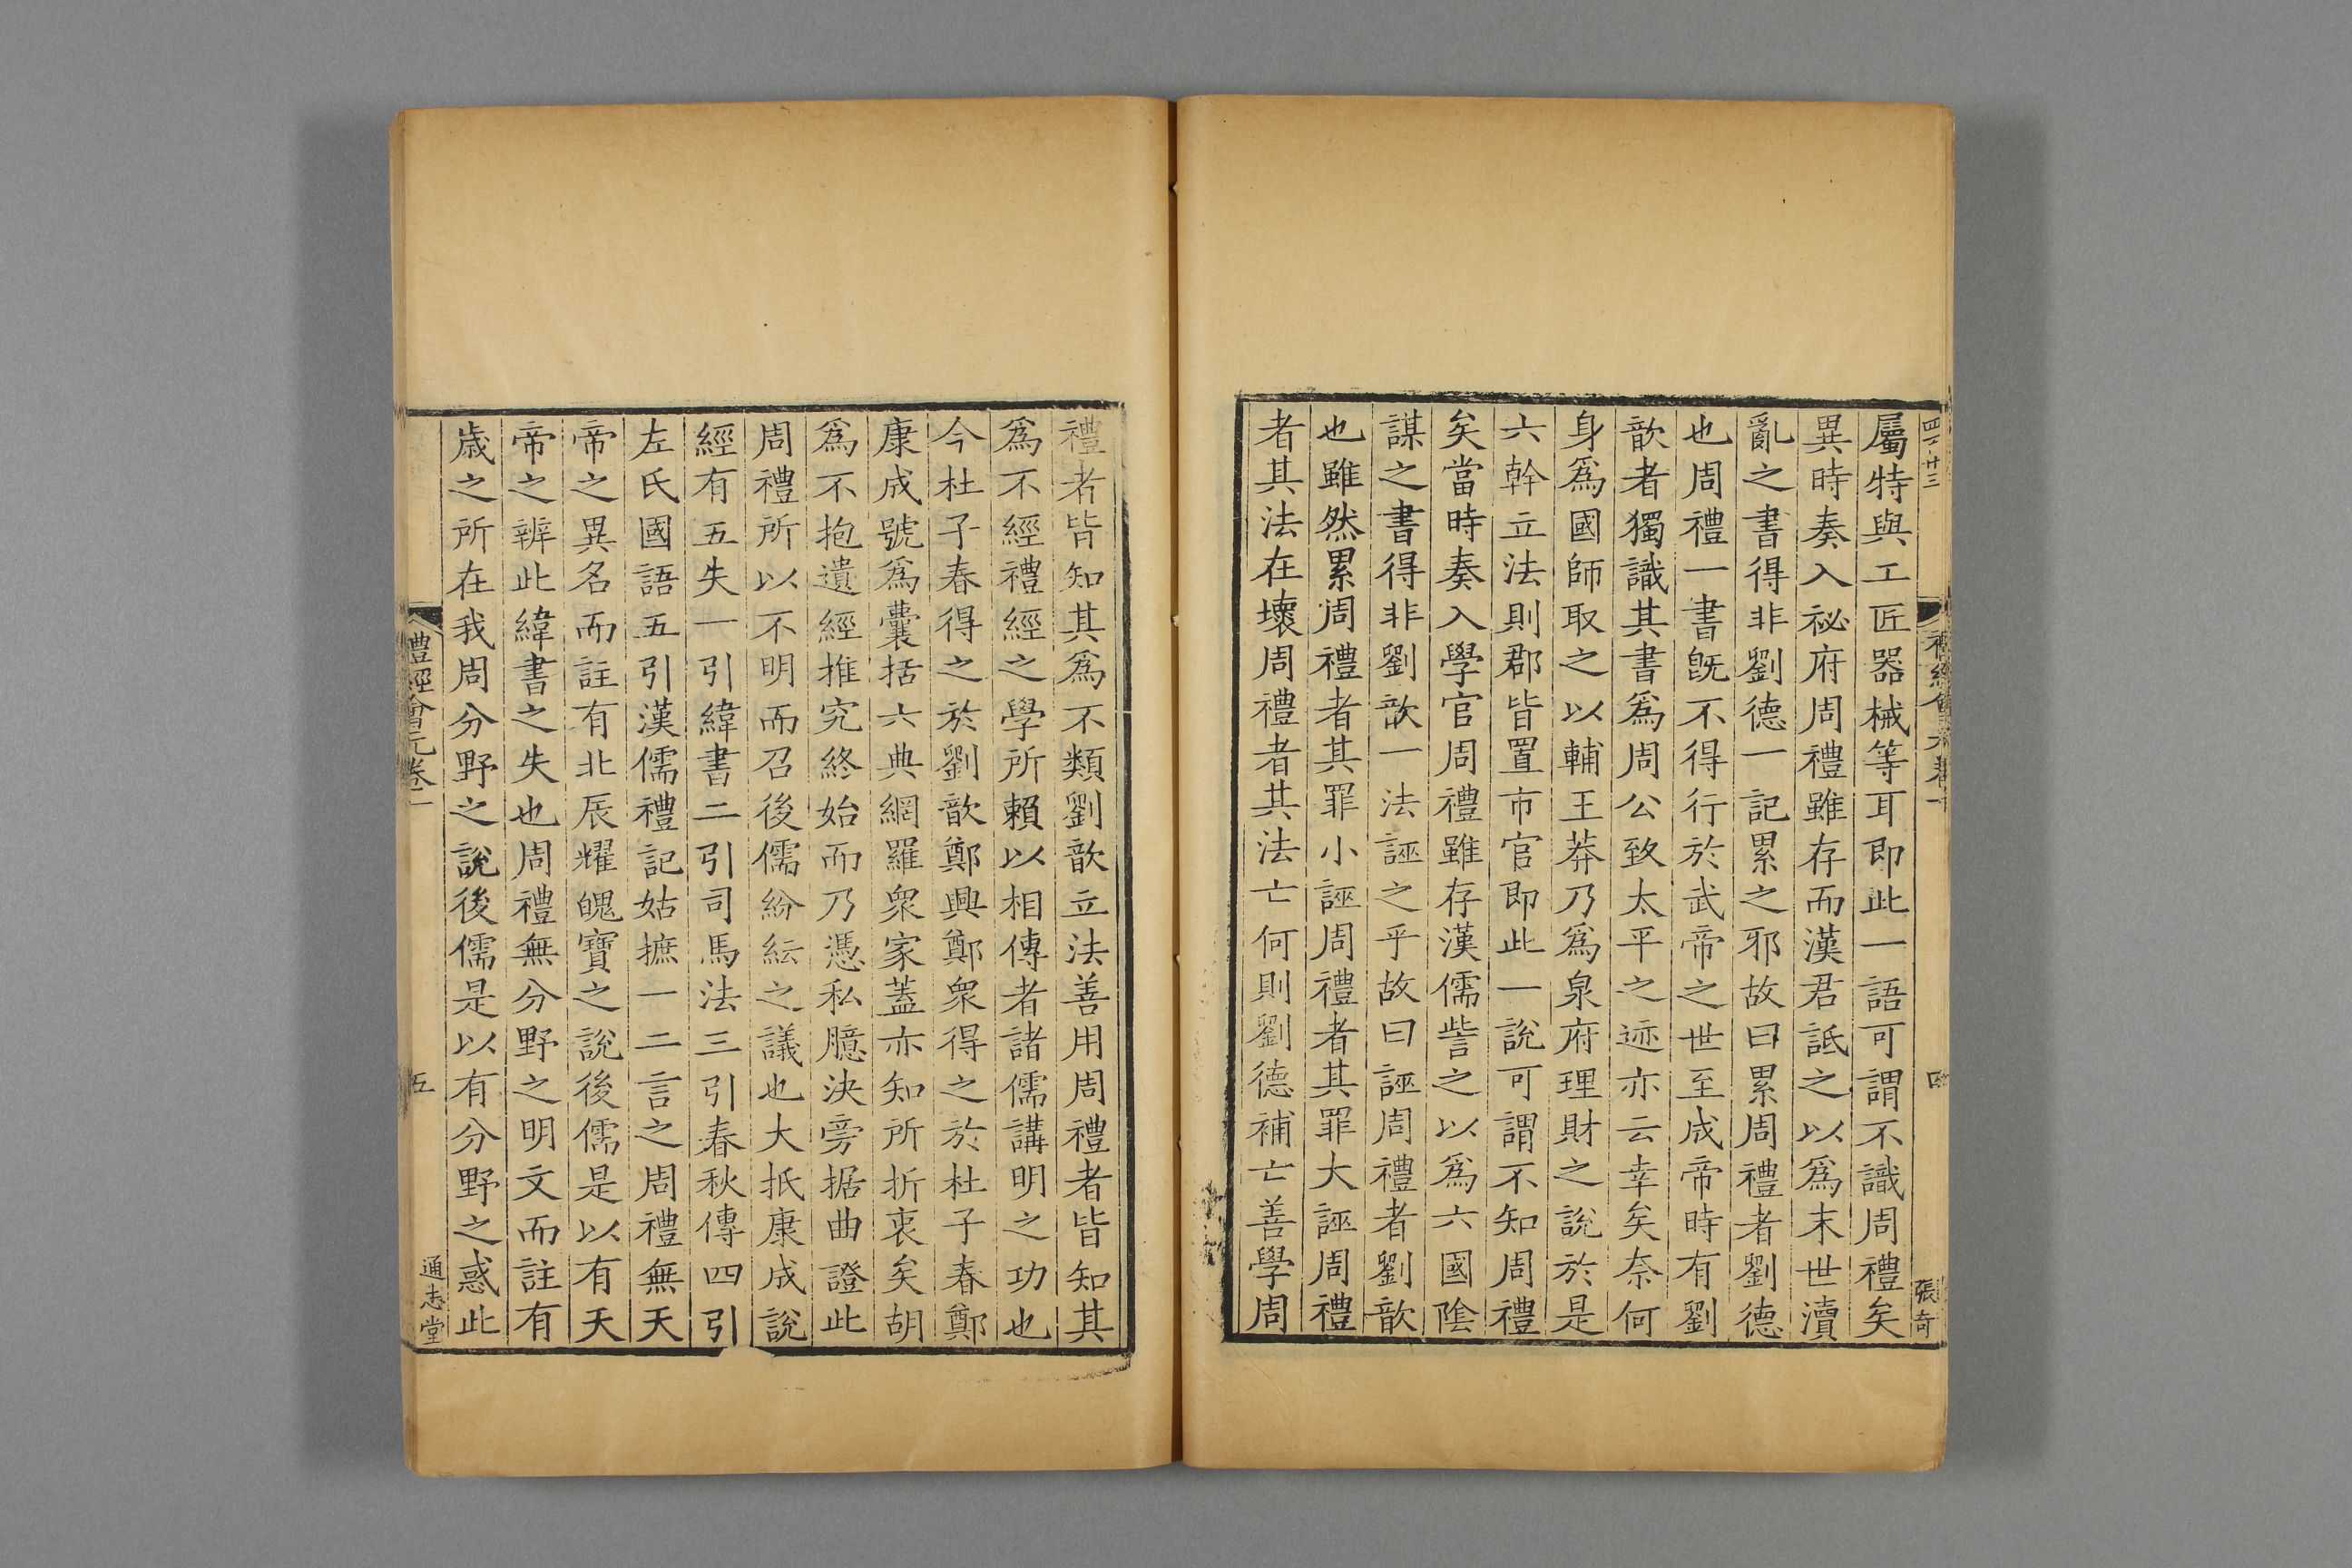 屬特與工匠器械等耳即此一語可謂不識周禮矣
異時奏入祕府周禮雖存而漢君詆之以爲末世瀆
亂之書得非劉德一記累之邪故曰累周禮者劉德
也周禮一書旣不得行於武帝之世至成帝時有劉
歆者獨識其書爲周公致太平之迹亦云幸矣奈何
身爲國師取之以輔王莽乃爲泉府理財之說於是
六幹立法則郡皆置市官即此一說可謂不知周禮
矣當時奏入學官周禮雖存漢儒訾之以爲六國陰
謀之書得非劉歆一法誣之乎故曰誣周禮者劉歆
也雖然累周禮者其罪小誣周禮者其罪大誣周禮
者其法在壞周禮者其法亡何則劉德補亡善學周
張奇
禮者皆知其爲不類劉歆立法善用周禮者皆知其
爲不經禮經之學所賴以相傳者諸儒講明之功也
今杜子春得之於劉歆鄭興鄭衆得之於杜子春鄭
康成號爲囊括六典網羅衆家蓋亦知所折衷矣胡
爲不抱遺經推究終始而乃憑私臆決旁據曲證此
周禮所以不明而召後儒紛紜之議也大抵康成說
經有五失一引緯書二引司馬法三引春秋傳四引
左氏國語五引漢儒禮記姑摭一二言之周禮無天
帝之異名而註有北辰耀魄寶之說後儒是以有天
帝之辨此緯書之失也周禮無分野之明文而註有
歲之所在我周分野之說後儒是以有分野之惑此
禮經會元卷一
五
通志堂